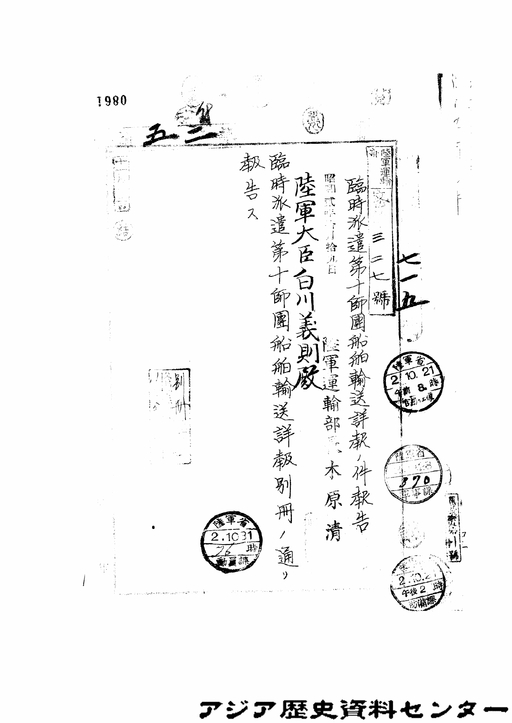 0861
五二
陸軍運輸
三二七號
七一五
臨時派遣第十師團船舶輸送詳報ノ件報告
昭和貳年
陸軍運輸部長 木原清
陸軍大臣白川義則殿
臨時派遣第十師團船舶輸送詳報別冊ノ通リ
報告ス
別冊
陸軍省
2.10.21
午前8時
陸軍省
370
2.10.21
午後2時
陸軍省
2.10.31
時
動員課
アジア歴史資料センター